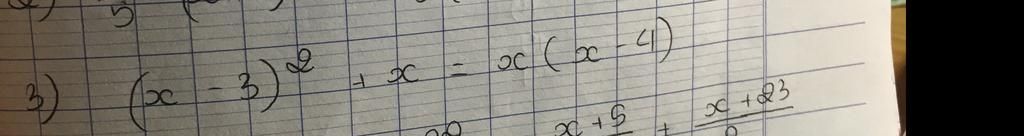 5 (
3) (x - 3)² + x = x (x - 4)
x + 5 + x + 23